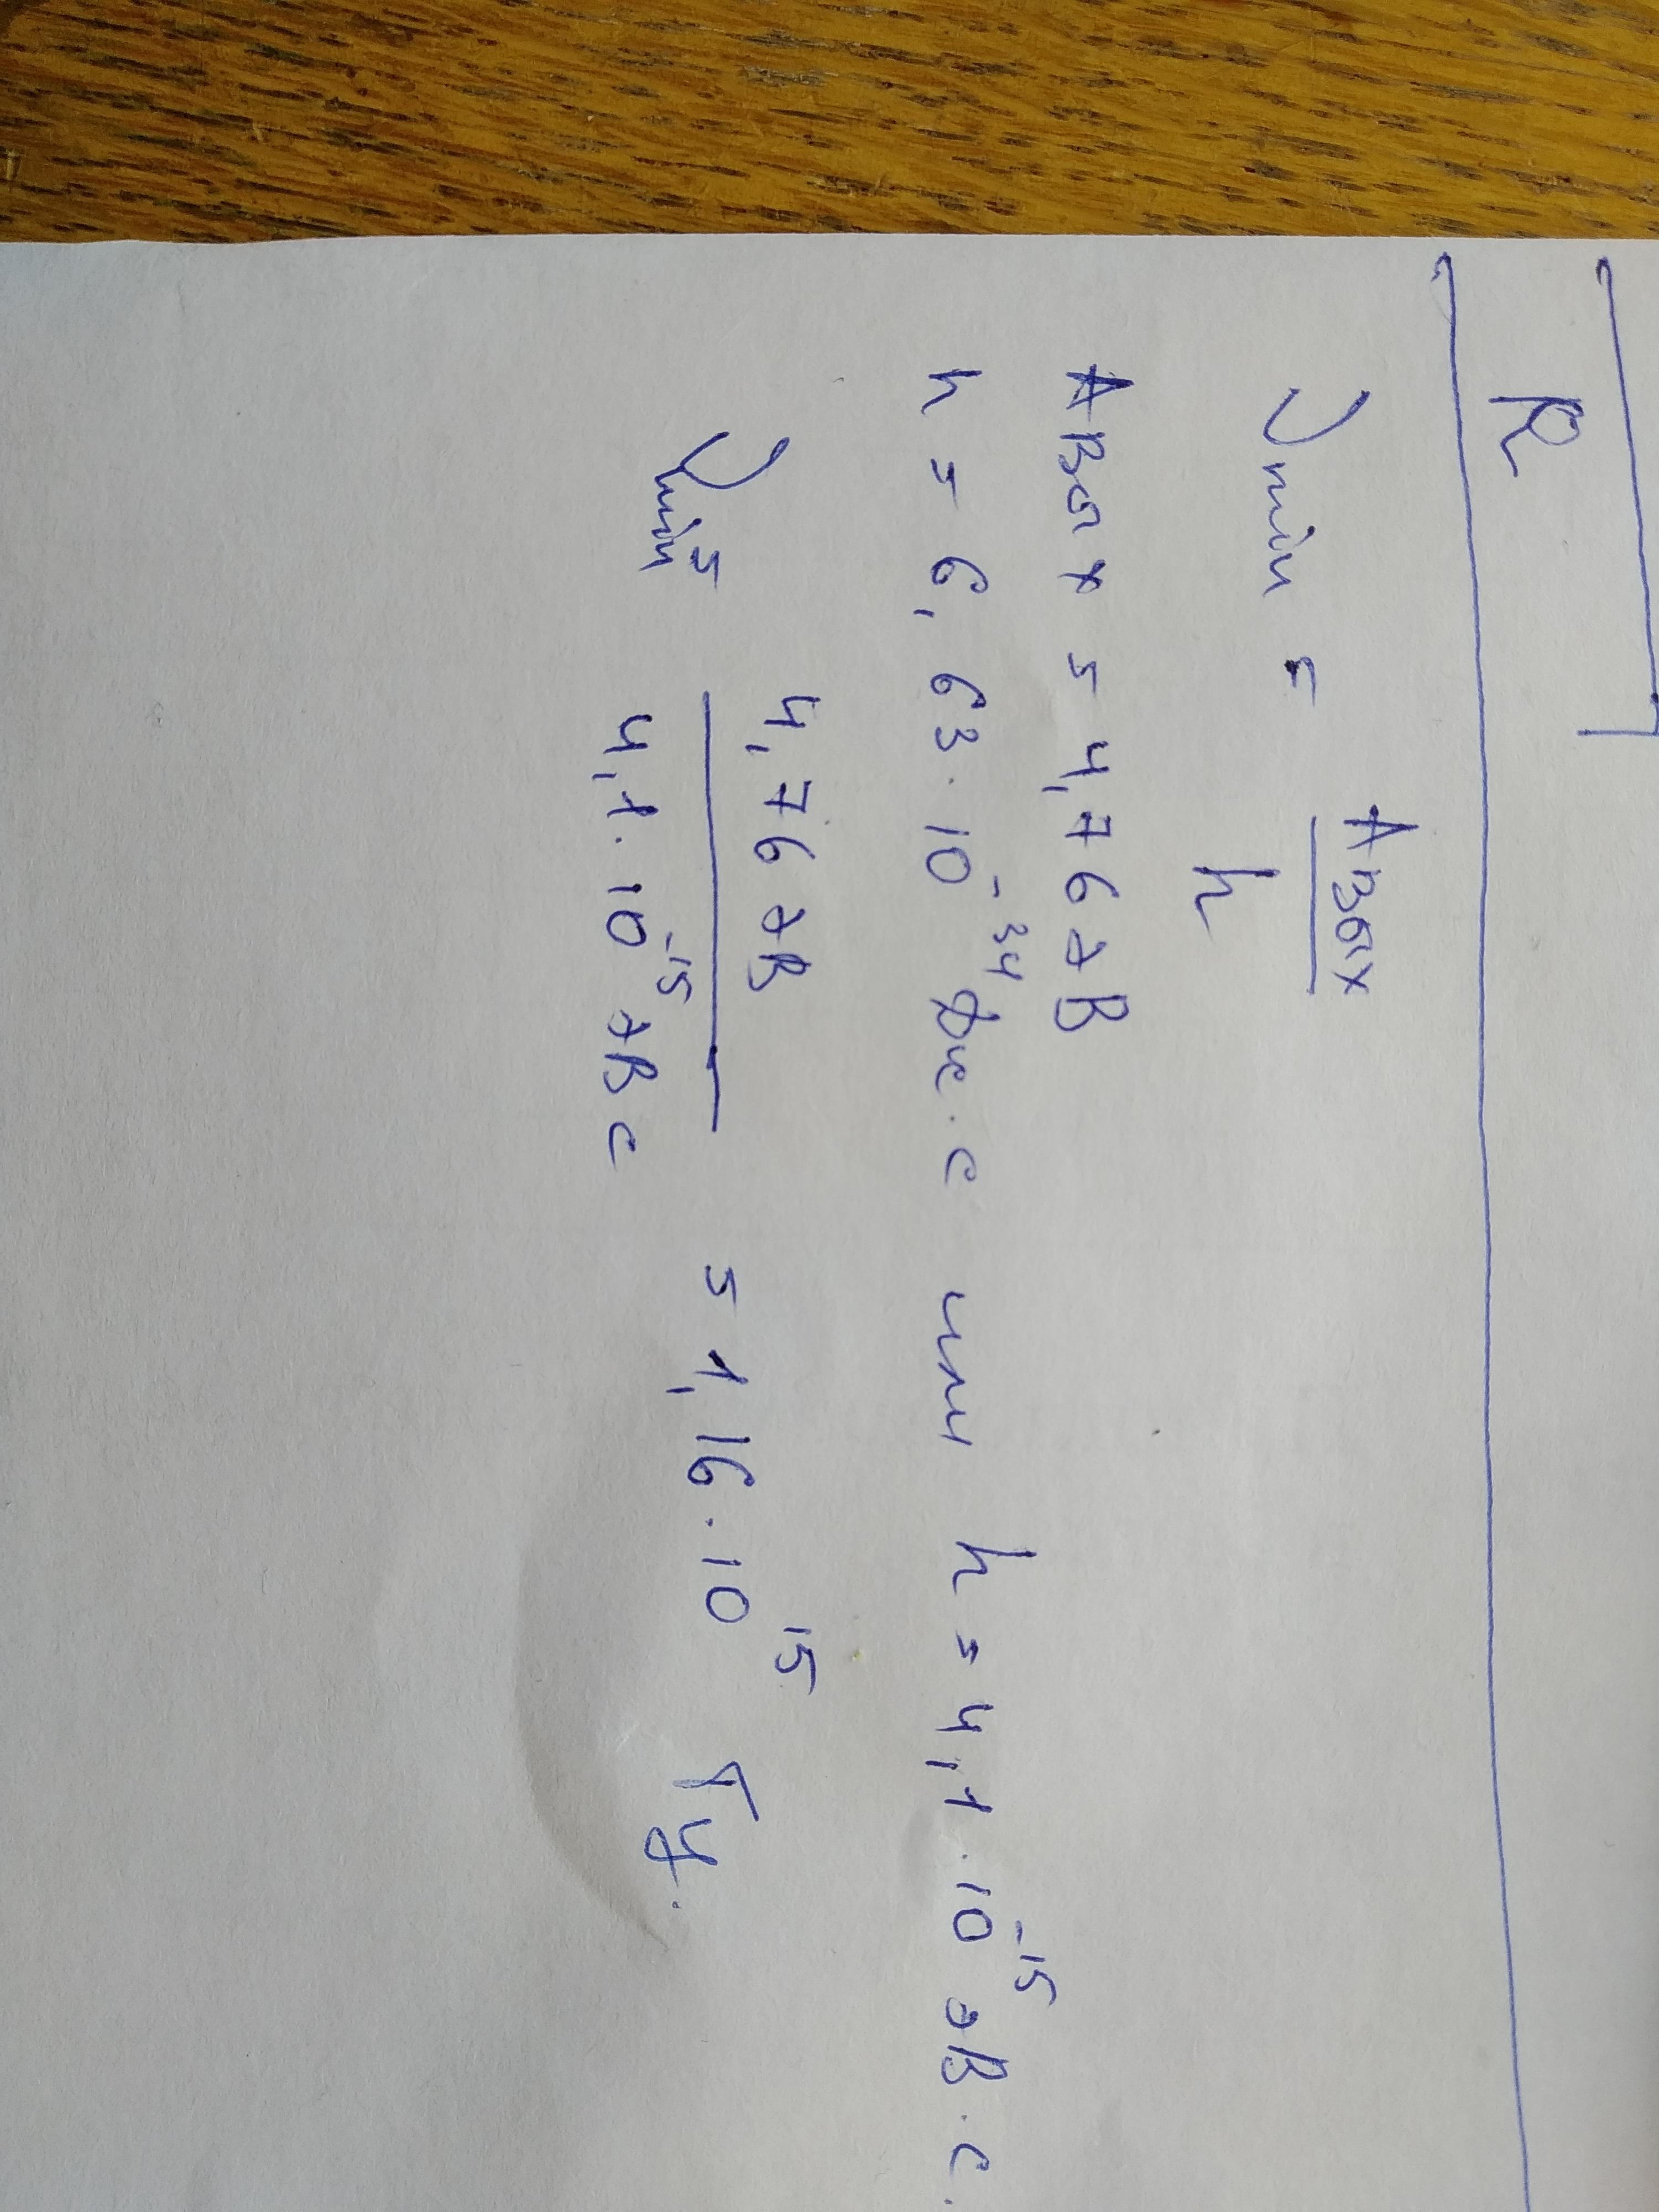 R
νmin = Aвых / h
Aвых = 4,76 эВ
h = 6,63 · 10^-34 Дж · с или h = 4,1 · 10^-15 эВ · с.
νmin = 4,76 эВ / 4,1 · 10^-15 эВ с = 1,16 · 10^15 Гц.